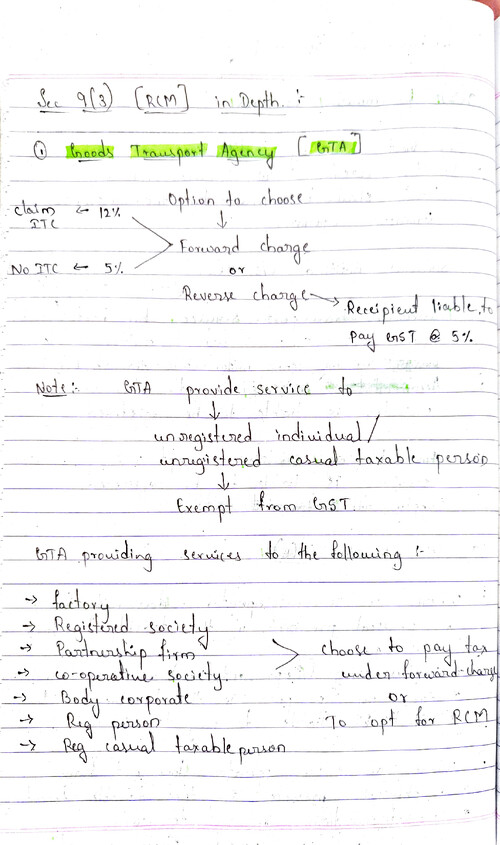 Sec 9(3) [RCM] in Depth :-
① Goods Transport Agency [GTA]
Option to choose
↓
claim ITC ← 12%
Forward charge
No ITC ← 5%
or
Reverse charge → Receipient liable to
pay GST @ 5%
Note:- GTA provide service to
↓
unregistered individual/
unregistered casual taxable person
↓
Exempt from GST.
GTA providing services to the following :-
→ factory
→ Registered society
→ Partnership firm
→ co-operative society.
→ Body corporate
→ Reg person
→ Reg casual taxable person
choose to pay tax
under forward charge
or
To opt for RCM